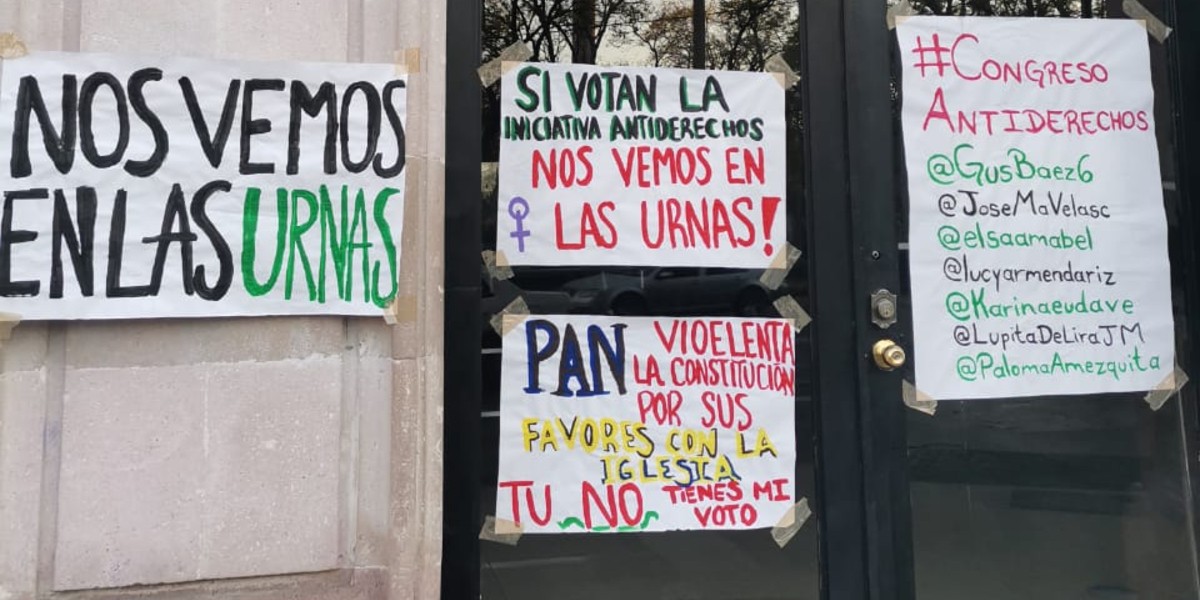 NOS VEMOS
EN LAS URNAS
SI VOTAN LA
INICIATIVA ANTIDERECHOS
NOS VEMOS EN
LAS URNAS!
PAN VIOELENTA
LA CONSTITUCIÓN
POR SUS
FAVORES CON LA
IGLESIA
TU NO TIENES MI
VOTO
#CONGRESO
ANTIDERECHOS
@GusBaez6
@JoseMaVelasc
@elsaamabel
@lucyarmendariz
@Karinaeudave
@LupitaDeLiraJM
@PalomaAmezquita